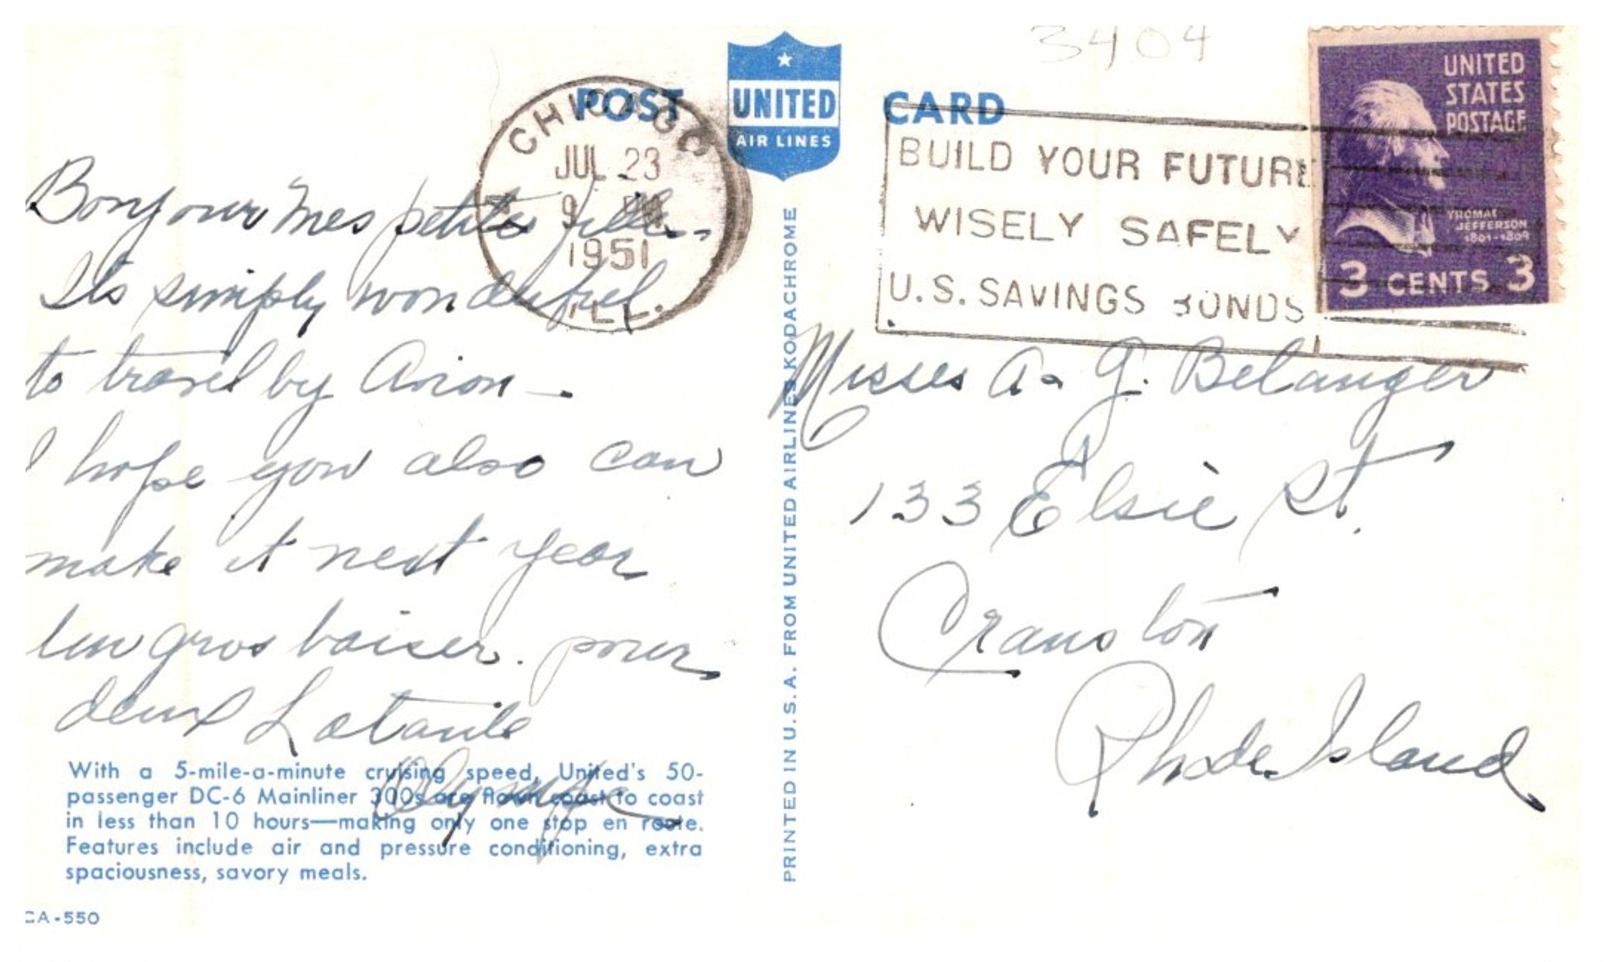 3404
POST CARD
UNITED
AIR LINES
CHICAGO
JUL 23
9 PM
1951
ILL.
BUILD YOUR FUTURE
WISELY SAFELY
U.S. SAVINGS BONDS
UNITED
STATES
POSTAGE
THOMAS
JEFFERSON
1801-1809
3 CENTS 3
Bonjour mes petites filles-
Its simply wonderful
to travel by Avion-
I hope you also can
make it next year
un gros baiser. pour
deux La tante
Olympe
Misses A & G. Belanger
133 Elsie St.
Cranston
Rhode Island
With a 5-mile-a-minute cruising speed, United's 50-
passenger DC-6 Mainliner 300s are flown coast to coast
in less than 10 hours—making only one stop en route.
Features include air and pressure conditioning, extra
spaciousness, savory meals.
PRINTED IN U.S.A. FROM UNITED AIRLINES KODACHROME
CA-550